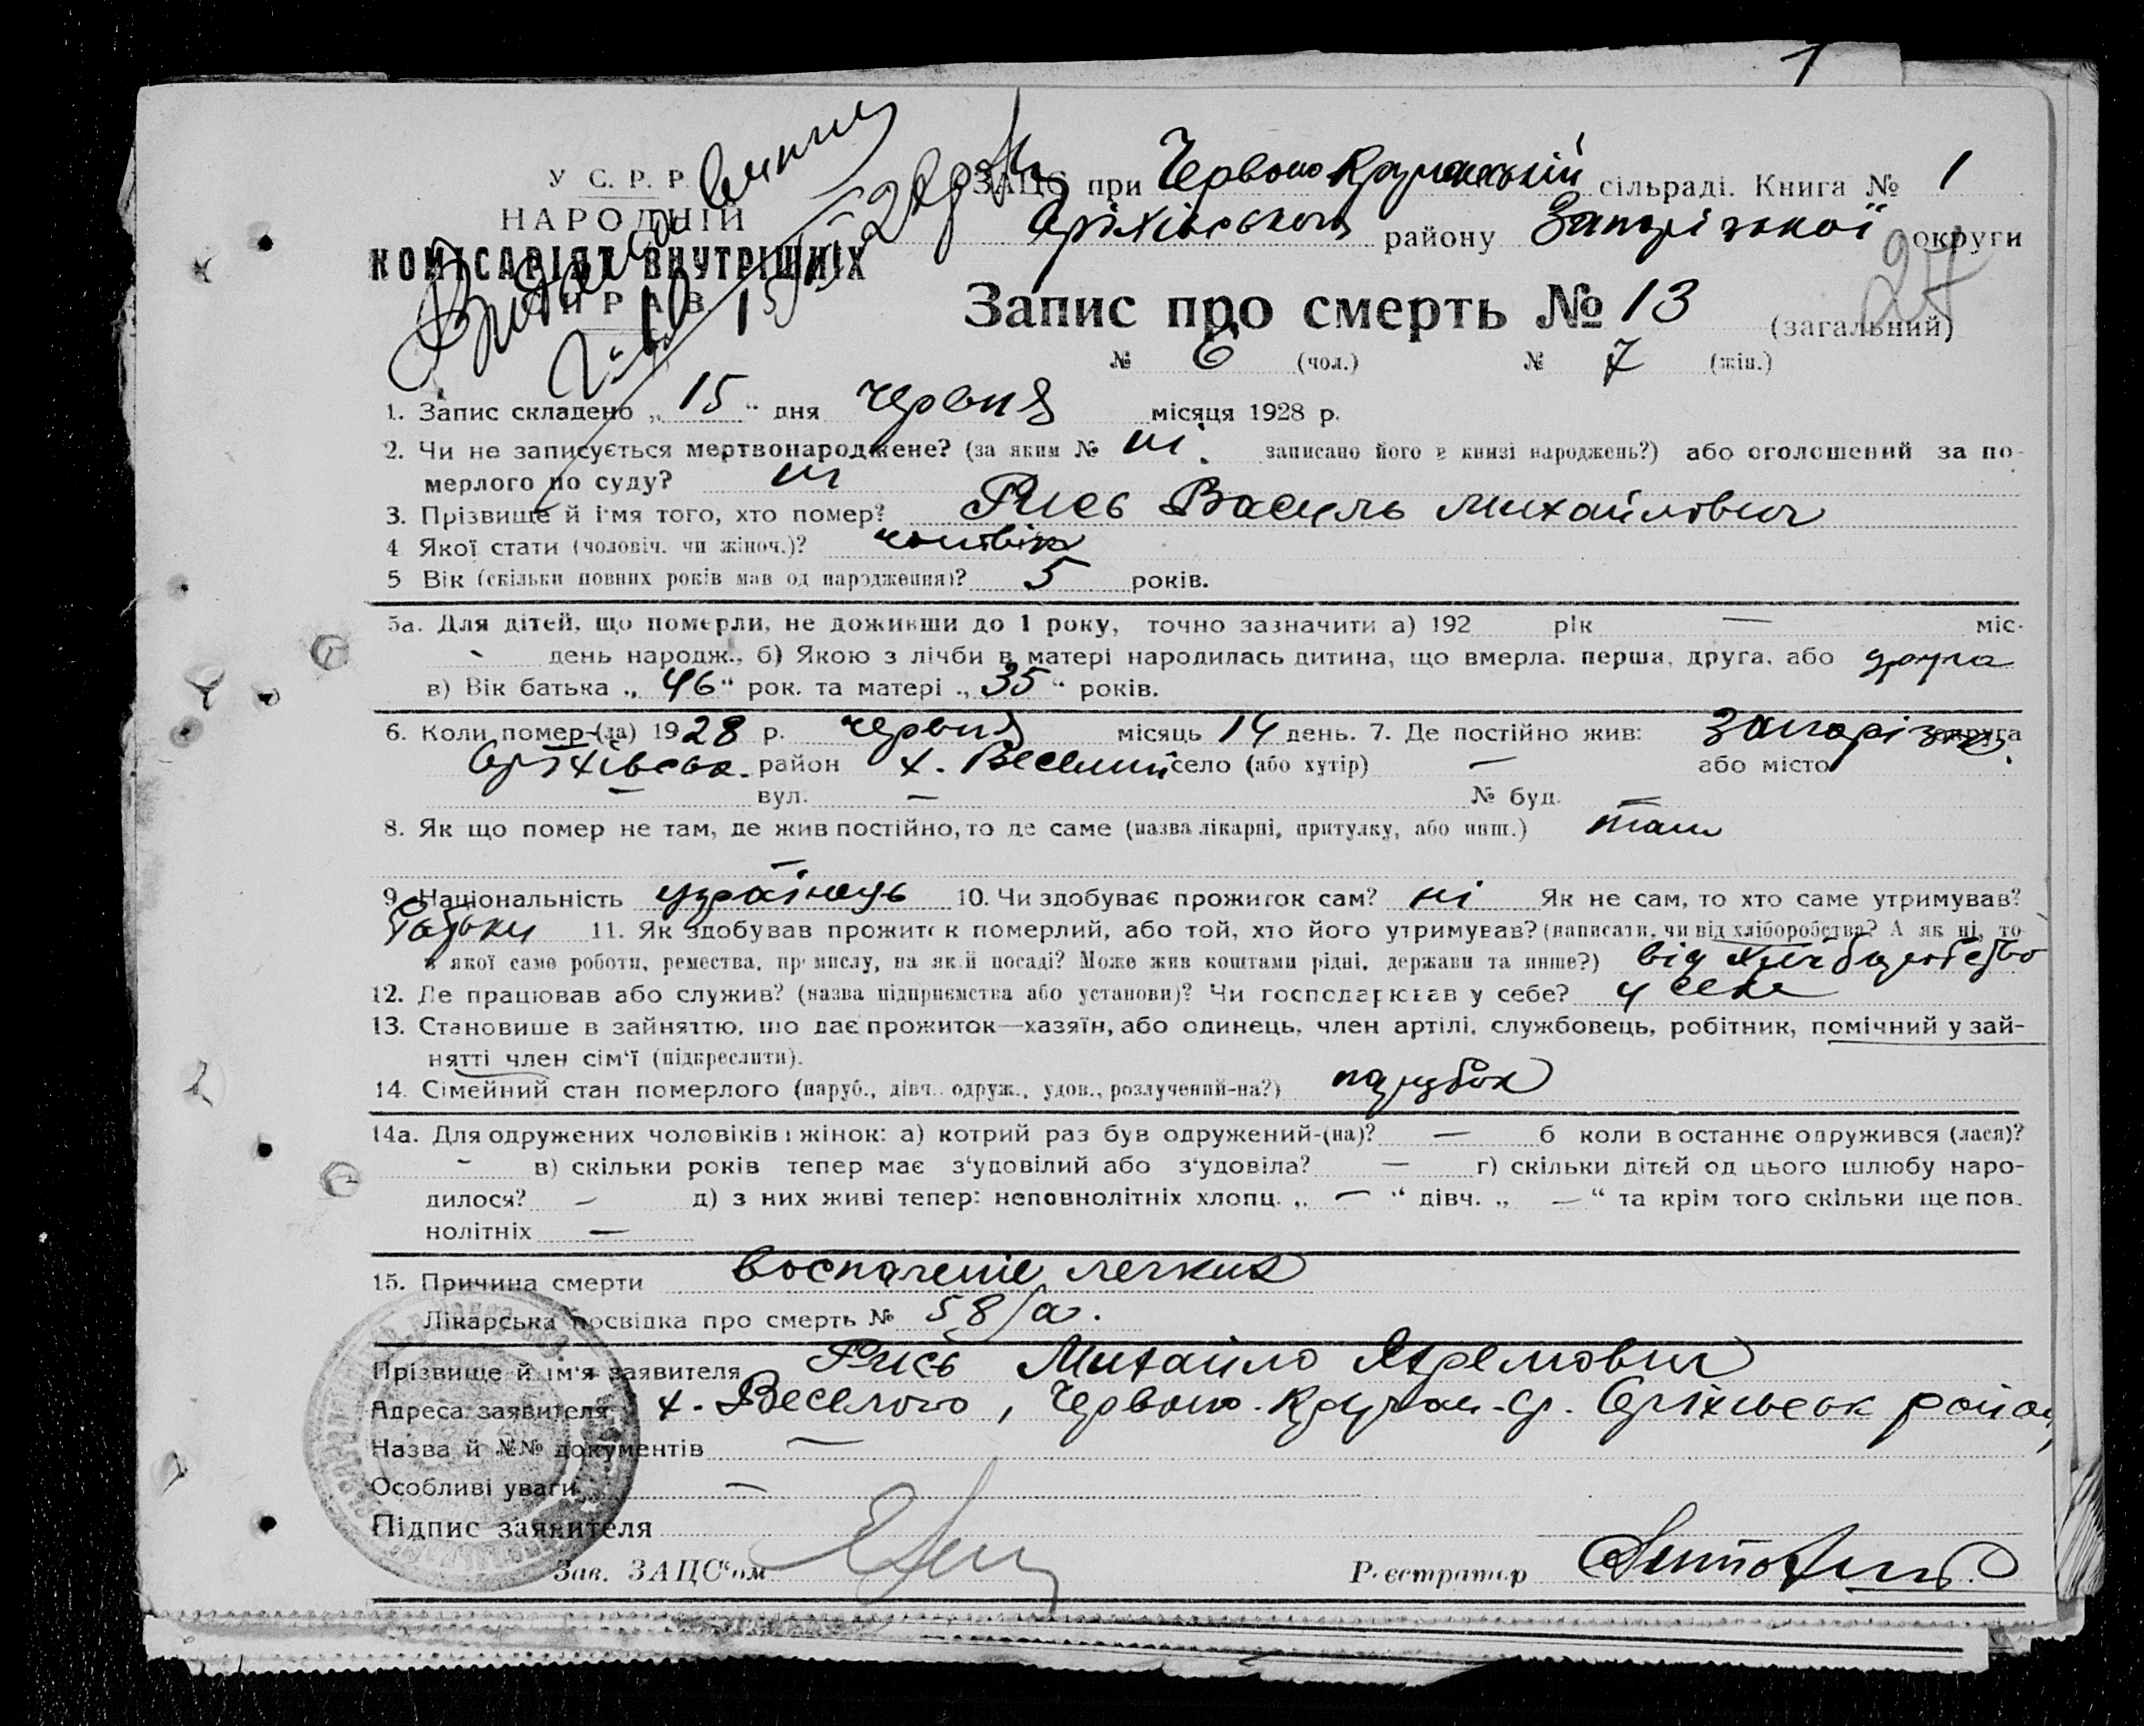 1
У С. Р. Р.
НАРОДНІЙ
КОМІСАРІЯТ ВНУТРІШНІХ
СПРАВ
ЗАЦС при Червоно Кру сільраді. Книга № 1
Оріхівського району Запорізької округи
27
Запис про смерть № 13 (загальний)
№ 6 (чол.) № 7 (жін.)
1. Запис складено „ 15 “ дня червня місяця 1928 р.
2. Чи не записується мертвонароджене? (за яким № ні. записано його в книзі народжень?) або оголошений за по-
мерлого по суду? ні
3. Прізвище й імя того, хто помер? Рись Василь Михайлович
4 Якої стати (чоловіч. чи жіноч.)? чоловік
5 Вік (скільки повних років мав од народження)? 5 років.
5а. Для дітей, що померли, не доживши до 1 року, точно зазначити а) 192 рік — міс.
- день народж., б) Якою з лічби в матері народилась дитина, що вмерла. перша, друга, або друга
в) Вік батька „ 46 “ рок. та матері „ 35 “ років.
6. Коли помер-(ла) 1928 р. червня місяць 14 день. 7. Де постійно жив: Запорізька округа
Оріхівськ. район х. Веселий село (або хутір) — або місто
— вул. — № буд. —
8. Як що помер не там, де жив постійно, то де саме (назва лікарні, притулку, або инш.) там
—
9. Національність українець 10. Чи здобуває прожиток сам? ні Як не сам, то хто саме утримував?
батьки 11. Як здобував прожиток померлий, або той, хто його утримував? (написати, чи від хліборобства? А як ні, то
з якої саме роботи, ремества, промислу, на якій посаді? Може жив коштами рідні, держави та инше?) від
12. Де працював або служив? (назва підприємства або установи)? Чи господарював у себе? у себе
13. Становище в зайняттю, що дає прожиток—хазяїн, або одинець, член артілі, службовець, робітник, помічний у зай-
нятті член сім'ї (підкреслити).
14. Сімейний стан померлого (паруб., дівч. одруж., удов., розлучений-на?) парубок
14а. Для одружених чоловіків і жінок: а) котрий раз був одружений-(на)? — б коли востаннє одружився (лася)?
- в) скільки років тепер має з'удовілий або з'удовіла? — г) скільки дітей од цього шлюбу наро-
дилося? — д) з них живі тепер: неповнолітніх хлопц. „ — “ дівч. „ — “ та крім того скільки ще пов.
нолітніх —
15. Причина смерти воспаление легких
Лікарська посвідка про смерть № 58/а.
Прізвище й ім'я заявителя Рись Михайло Яремович
Адреса заявителя х. Веселого, Червоно. ср. Оріхівськ район
Назва й №№ документів —
Особливі уваги —
Підпис заявителя
Зав. ЗАЦС'ом
Реєстратор